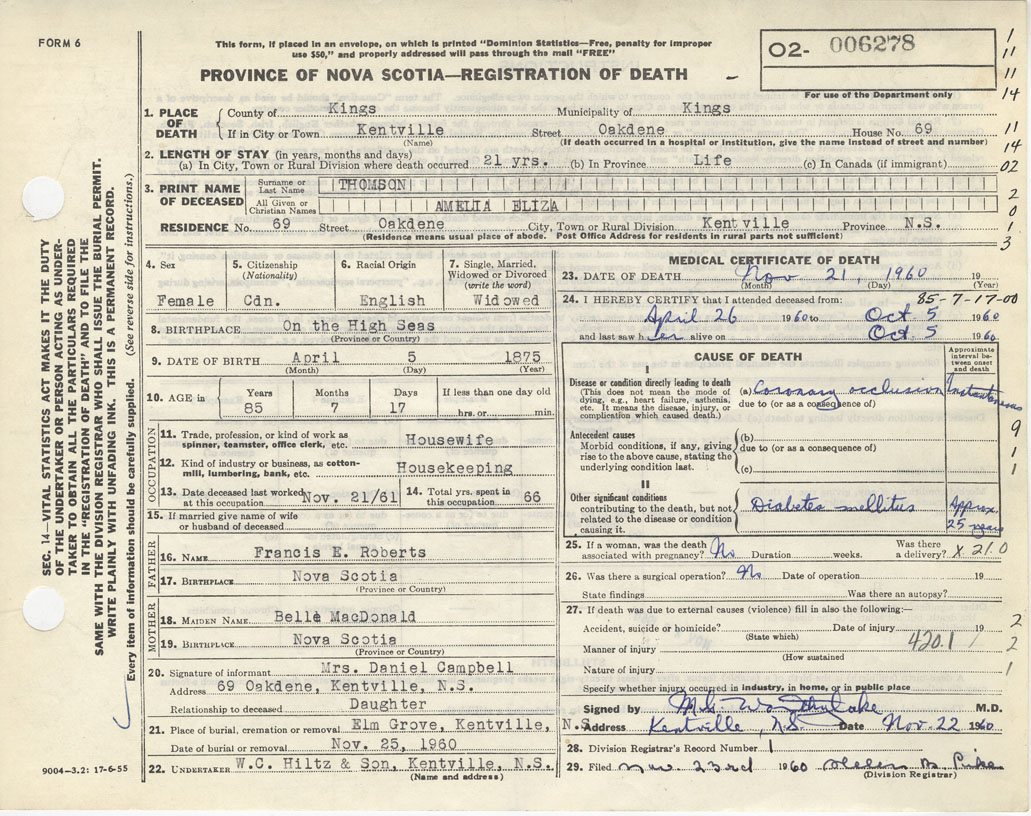 FORM 6
This form, if placed in an envelope, on which is printed "Dominion Statistics—Free, penalty for improper
use $50," and properly addressed will pass through the mail "FREE"
O2- 006278
For use of the Department only
PROVINCE OF NOVA SCOTIA—REGISTRATION OF DEATH
1. PLACE OF DEATH
County of Kings Municipality of Kings
If in City or Town Kentville Street Oakdene House No. 69
(Name) (If death occurred in a hospital or institution, give the name instead of street and number)
2. LENGTH OF STAY (in years, months and days)
(a) In City, Town or Rural Division where death occurred 21 yrs. (b) In Province Life (c) In Canada (if immigrant)
3. PRINT NAME OF DECEASED
Surname or Last Name THOMSON
All Given or Christian Names AMELIA ELIZA
RESIDENCE No. 69 Street Oakdene City, Town or Rural Division Kentville Province N.S.
(Residence means usual place of abode. Post Office Address for residents in rural parts not sufficient)
4. Sex Female
5. Citizenship (Nationality) Cdn.
6. Racial Origin English
7. Single, Married, Widowed or Divorced (write the word) Widowed
8. BIRTHPLACE On the High Seas
(Province or Country)
9. DATE OF BIRTH April 5 1875
(Month) (Day) (Year)
10. AGE in Years 85 Months 7 Days 17 If less than one day old hrs. or min.
OCCUPATION
11. Trade, profession, or kind of work as spinner, teamster, office clerk, etc. Housewife
12. Kind of industry or business, as cotton-mill, lumbering, bank, etc. Housekeeping
13. Date deceased last worked at this occupation Nov. 21/61 14. Total yrs. spent in this occupation 66
15. If married give name of wife or husband of deceased
FATHER
16. NAME Francis E. Roberts
17. BIRTHPLACE Nova Scotia
(Province or Country)
MOTHER
18. MAIDEN NAME Belle MacDonald
19. BIRTHPLACE Nova Scotia
(Province or Country)
20. Signature of informant Mrs. Daniel Campbell
Address 69 Oakdene, Kentville, N.S.
Relationship to deceased Daughter
21. Place of burial, cremation or removal Elm Grove, Kentville, N.S.
Date of burial or removal Nov. 25, 1960
22. UNDERTAKER W.C. Hiltz & Son, Kentville, N.S.
(Name and address)
MEDICAL CERTIFICATE OF DEATH
23. DATE OF DEATH Nov 21, 1960 19
(Month) (Day) (Year)
24. I HEREBY CERTIFY that I attended deceased from: 85-7-17-00
April 26 1960 to Oct 5 1960
and last saw her alive on Oct 5 1960
CAUSE OF DEATH
Approximate interval between onset and death
I
Disease or condition directly leading to death
(This does not mean the mode of dying, e.g., heart failure, asthenia, etc. It means the disease, injury, or complication which caused death.)
(a) Coronary occlusion Instantaneous
due to (or as a consequence of)
Antecedent causes
Morbid conditions, if any, giving rise to the above cause, stating the underlying condition last.
(b)
due to (or as a consequence of)
(c)
II
Other significant conditions
contributing to the death, but not related to the disease or condition causing it.
Diabetes mellitus Approx. 25 years
25. If a woman, was the death associated with pregnancy? No Duration weeks. Was there a delivery? X 21.0
26. Was there a surgical operation? No Date of operation 19
State findings Was there an autopsy?
27. If death was due to external causes (violence) fill in also the following:—
Accident, suicide or homicide? Date of injury 19
(State which)
Manner of injury 420.1
(How sustained
Nature of injury
Specify whether injury occurred in industry, in home, or in public place
Signed by M.D.
Address Kentville, N.S. Date Nov. 22 1960
28. Division Registrar's Record Number 1
29. Filed Nov 23rd 1960 Helen M Pike
(Division Registrar)
SEC. 14—VITAL STATISTICS ACT MAKES IT THE DUTY
OF THE UNDERTAKER OR PERSON ACTING AS UNDER-
TAKER TO OBTAIN ALL THE PARTICULARS REQUIRED
IN THE "REGISTRATION OF DEATH" AND TO FILE THE
SAME WITH THE DIVISION REGISTRAR WHO SHALL ISSUE THE BURIAL PERMIT.
WRITE PLAINLY WITH UNFADING INK. THIS IS A PERMANENT RECORD.
Every item of information should be carefully supplied. (See reverse side for instructions.)
9004—3.2: 17-6-55
1
11
11
14
11
14
02
2
0
1
3
9
1
1
2
2
1